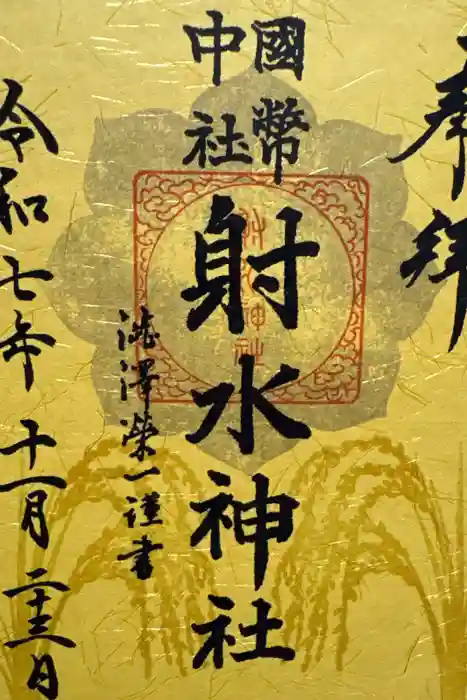 奉拝
國幣
中社
射水神社
射水神社
澁澤榮一謹書
令和七年十一月二十三日